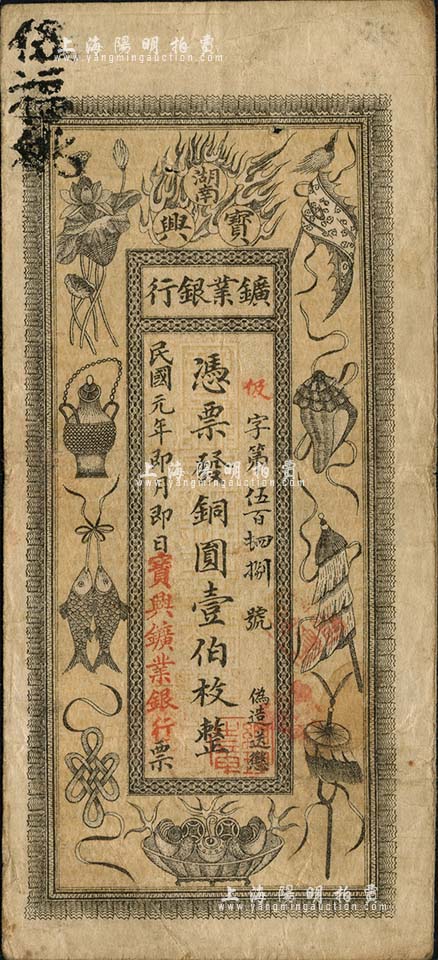 上海陽明拍賣
www.yangmingauction.com
湖南
寶興
鑛業銀行
字第伍百拐捌號
憑票發銅圓壹伯枚整
民國元年即月即日寶興鑛業銀行票
偽造送懲
上海陽明拍賣
www.yangmingauction.com
上海陽明拍賣
www.yangmingauction.com